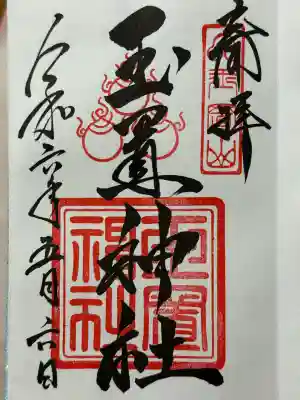 奉拝
玉置神社
令和六年五月六日
玉置神社